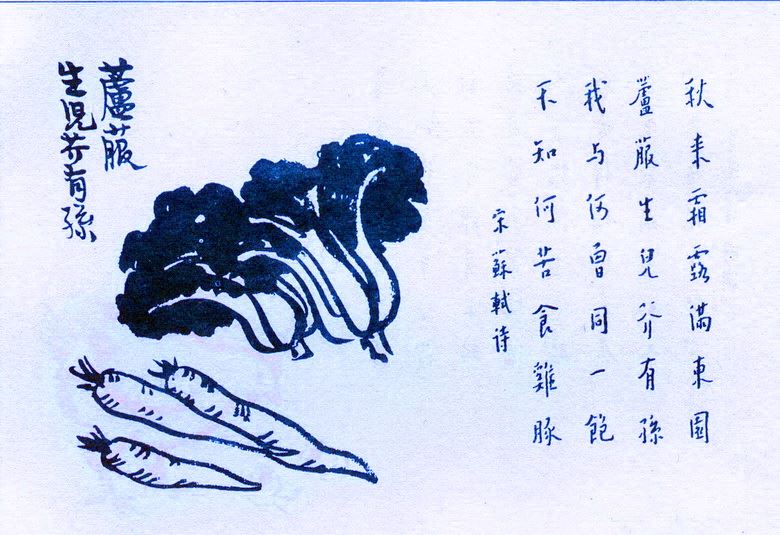 秋来霜露滿東園
蘆菔生兒芥有孫
我与何曾同一飽
不知何苦食雞豚
宋蘇軾诗
蘆菔
生児芥有孫